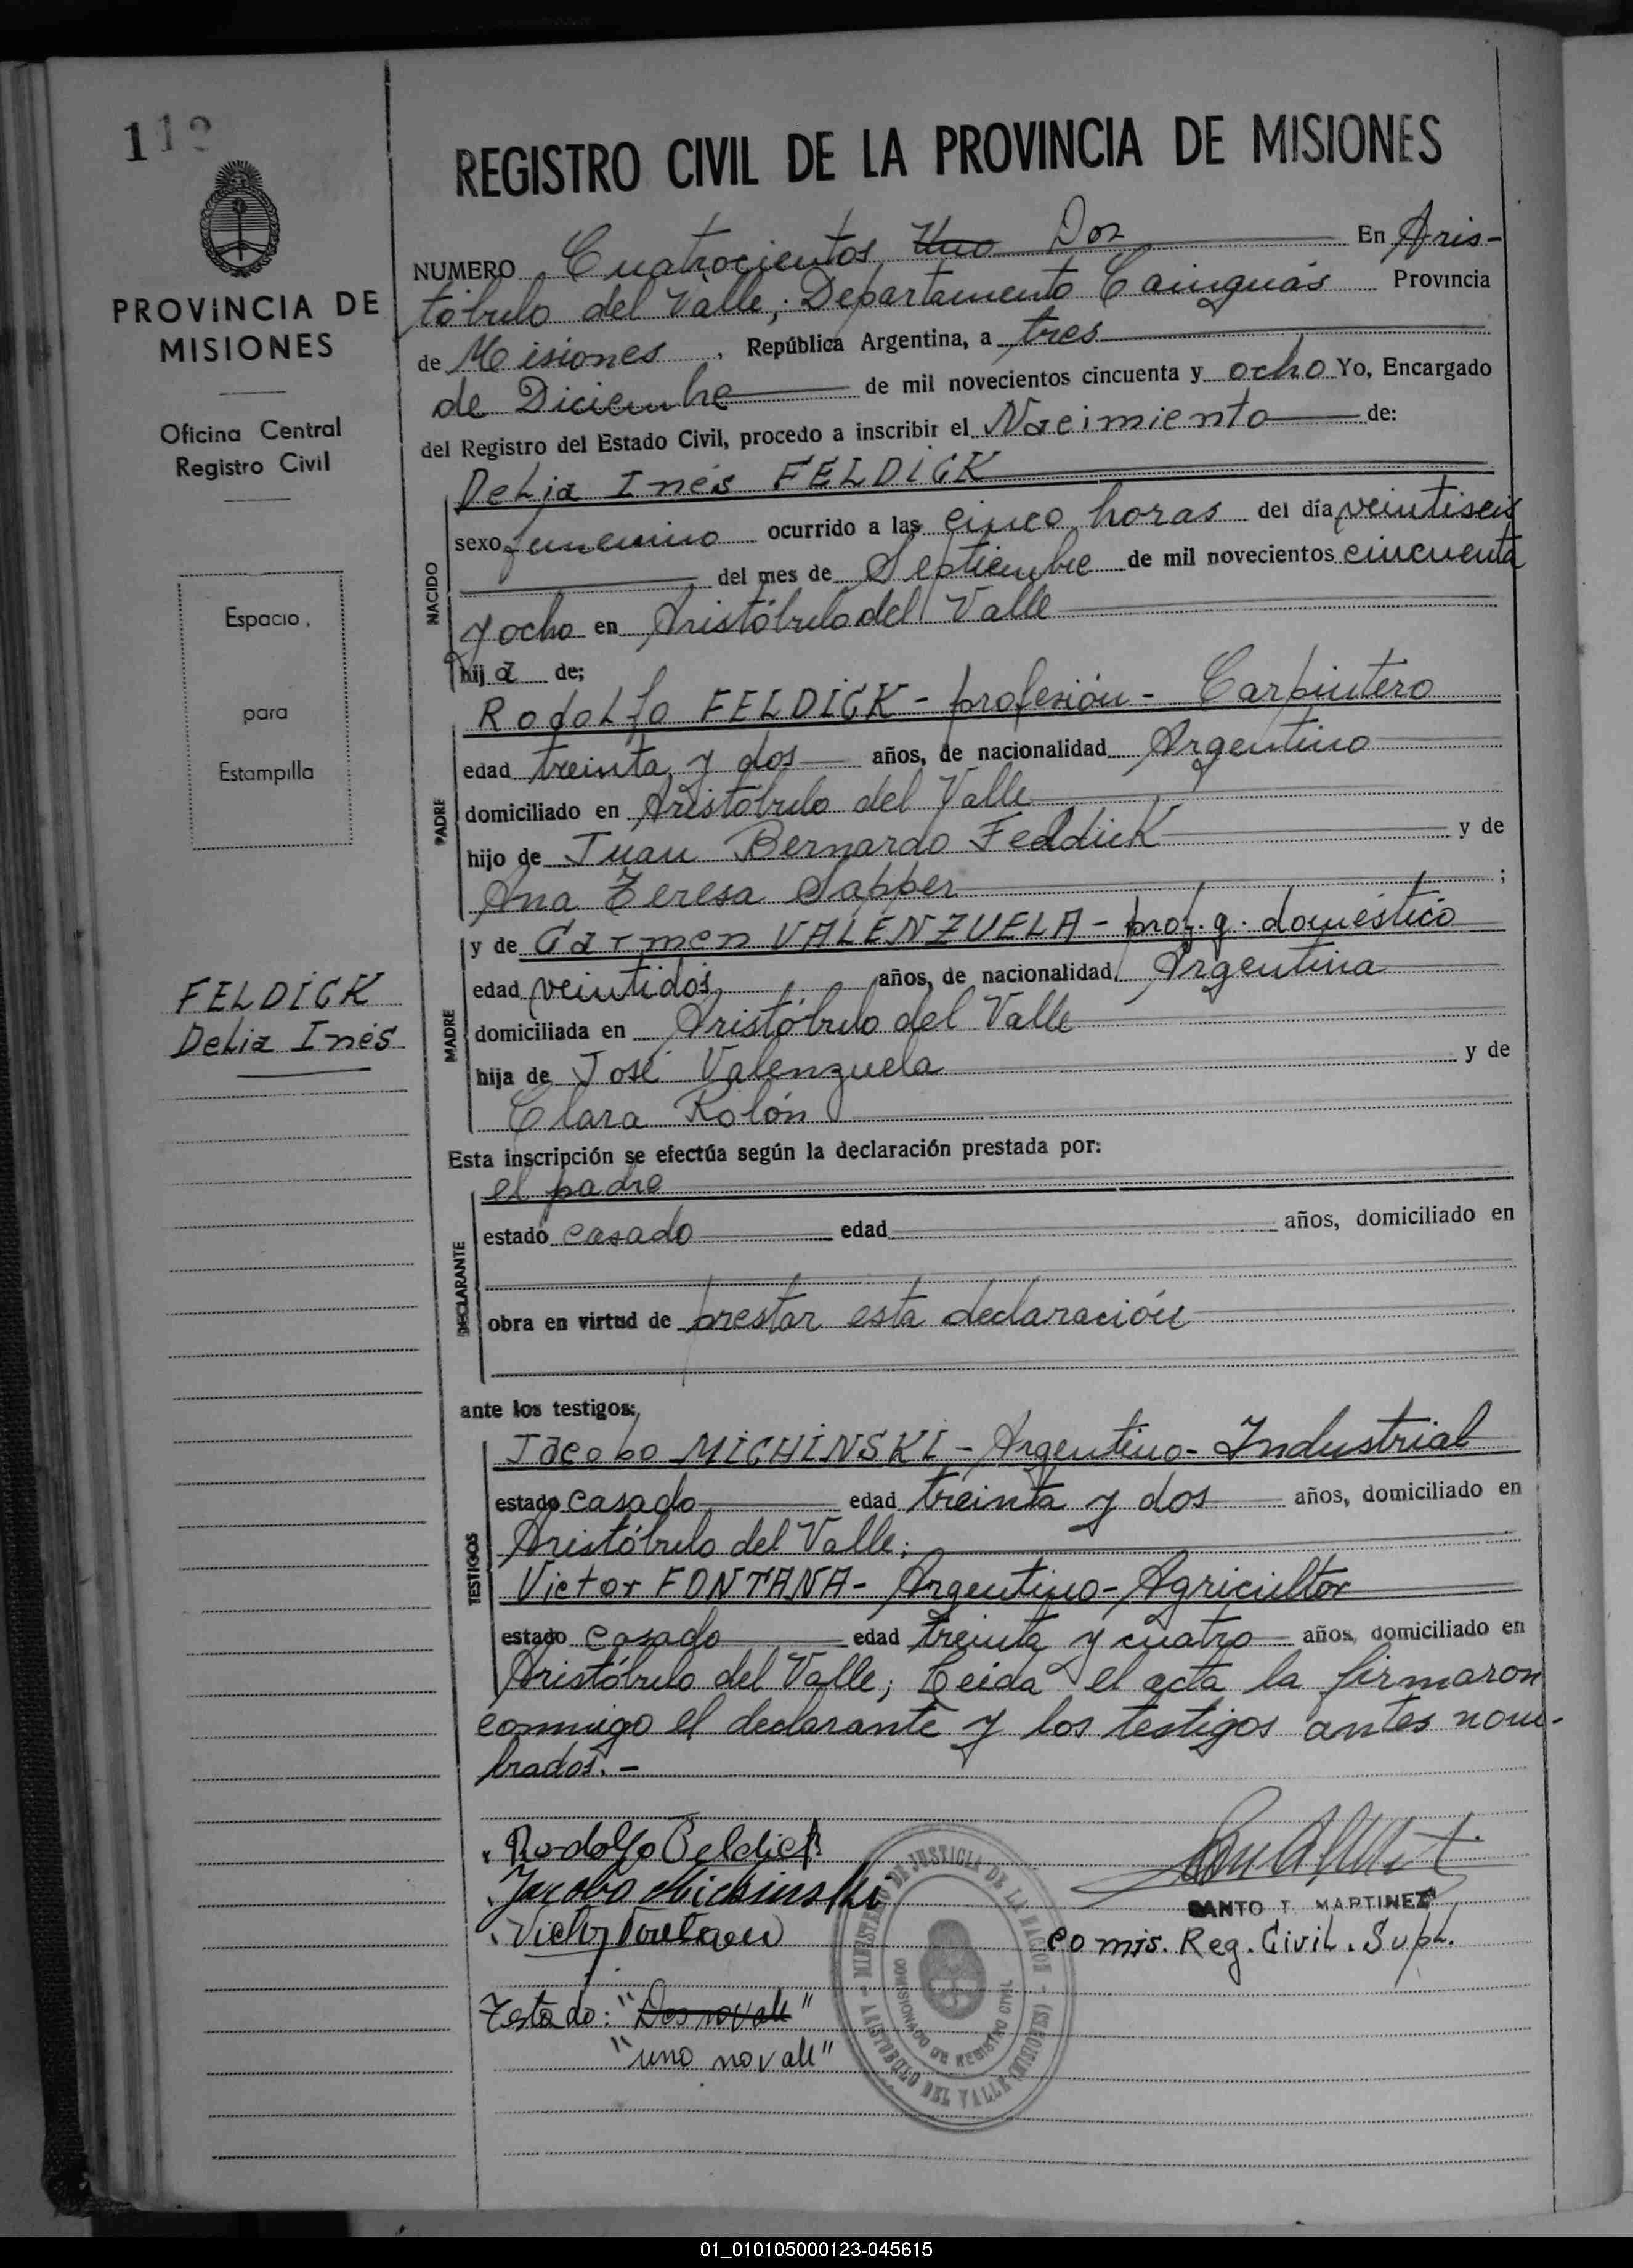 112
PROVINCIA DE
MISIONES
Oficina Central
Registro Civil
Espacio
para
Estampilla
FELDICK
Delia Inés
REGISTRO CIVIL DE LA PROVINCIA DE MISIONES
NUMERO Cuatrocientos Uno Dos En Aris-
tóbulo del Valle; Departamento Cainguás Provincia
de Misiones, República Argentina, a tres
de Diciembre de mil novecientos cincuenta y ocho Yo, Encargado
del Registro del Estado Civil, procedo a inscribir el Nacimiento de:
NACIDO
Delia Inés FELDICK
sexo femenino ocurrido a las cinco horas del día veintiseis
del mes de Septiembre de mil novecientos cincuenta
y ocho en Aristóbulo del Valle
hija de;
PADRE
Rodolfo FELDICK - profesión - Carpintero
edad treinta y dos años, de nacionalidad Argentino
domiciliado en Aristóbulo del Valle
hijo de Juan Bernardo Feldick y de
Ana Teresa Sapper ;
MADRE
y de Carmen VALENZUELA - prof. q. doméstico
edad veintidós años, de nacionalidad Argentina
domiciliada en Aristóbulo del Valle
hija de José Valenzuela y de
Clara Rolón
Esta inscripción se efectúa según la declaración prestada por:
DECLARANTE
el padre
estado casado edad años, domiciliado en
obra en virtud de prestar esta declaración
ante los testigos:
TESTIGOS
Jacobo MICHINSKI - Argentino - Industrial
estado casado edad treinta y dos años, domiciliado en
Aristóbulo del Valle;
Victor FONTANA - Argentino - Agricultor
estado casado edad treinta y cuatro años, domiciliado en
Aristóbulo del Valle; Leida el acta la firmaron
conmigo el declarante y los testigos antes nom-
brados. -
Rodolfo Feldick
Jacobo Michinski
SANTO T. MARTINEZ
Comis. Reg. Civil. Supl.
MINISTERIO DE JUSTICIA DE LA NACION - ARISTOBULO DEL VALLE (MISIONES)
COMISIONADO DE REGISTRO CIVIL
Testado: "Dos no vale"
"uno no vale"
01_010105000123-045615